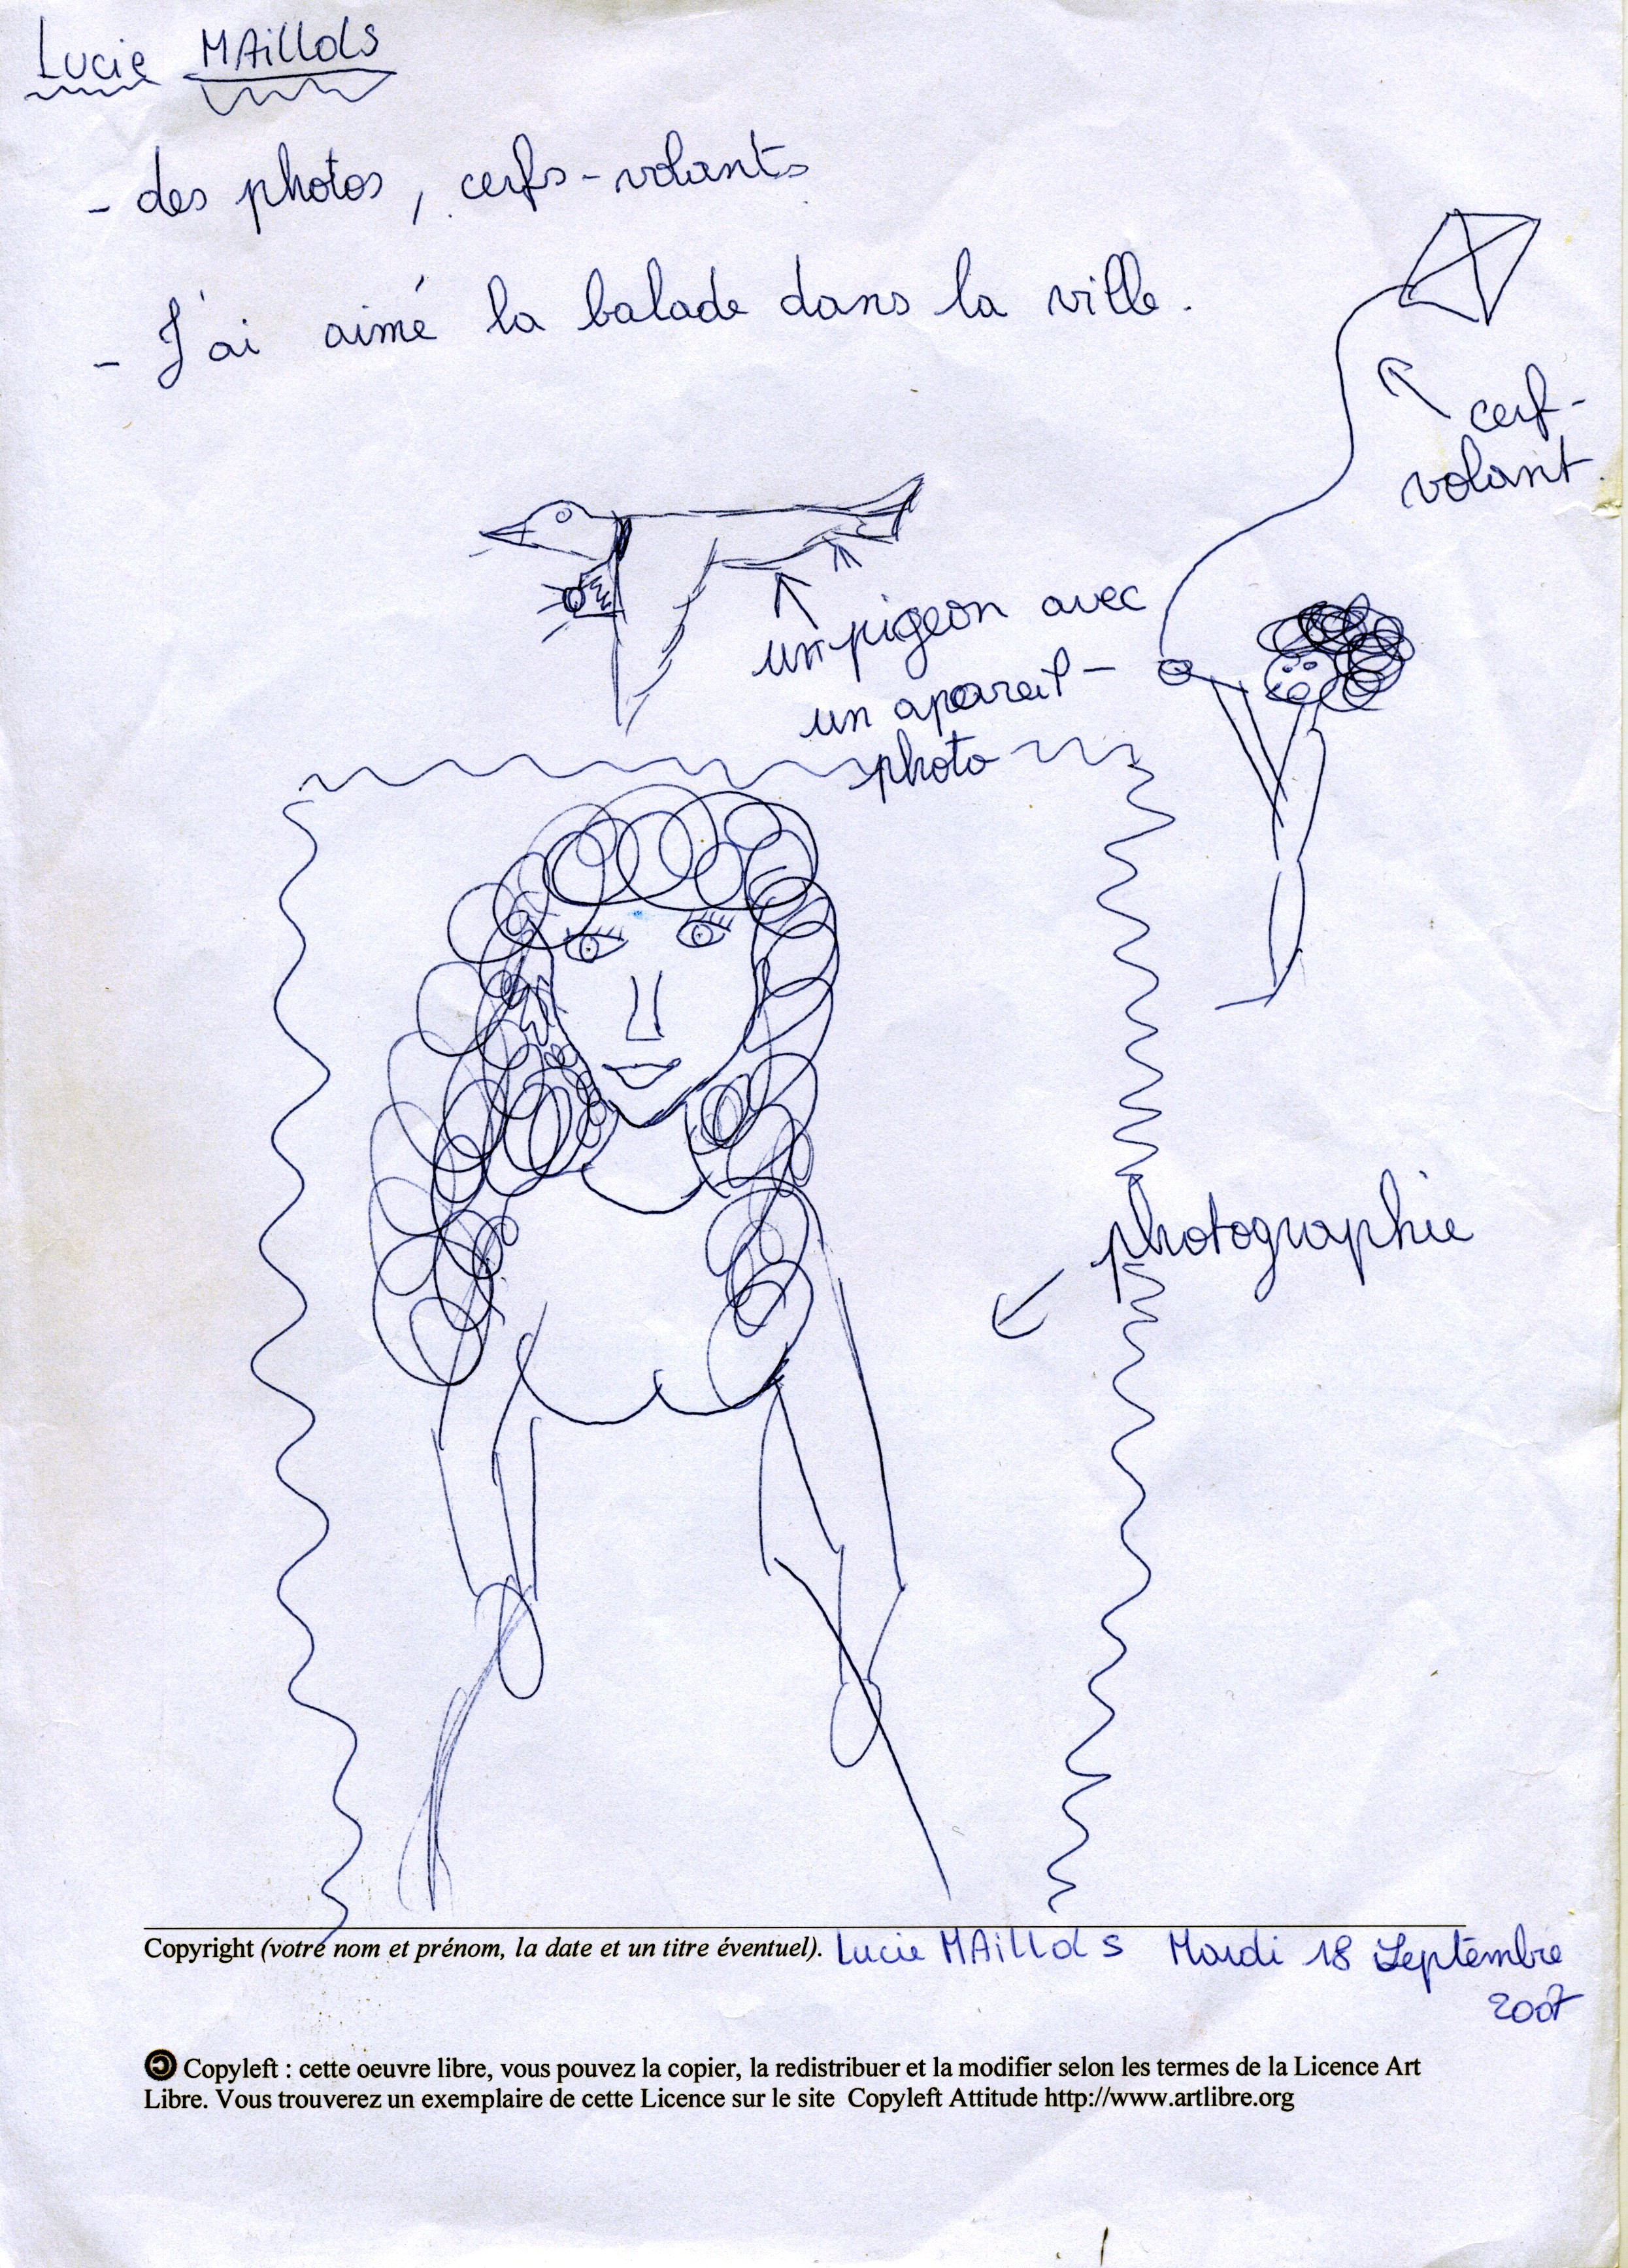 Lucie MAillols
- des photos, cerfs-volants
- J'ai aimé la balade dans la ville.
cerf-
volant.
un pigeon avec
un apareil-
photo
photographie
Copyright (votre nom et prénom, la date et un titre éventuel). Lucie MAillols Mardi 18 Septembre
2007
Copyleft : cette oeuvre libre, vous pouvez la copier, la redistribuer et la modifier selon les termes de la Licence Art
Libre. Vous trouverez un exemplaire de cette Licence sur le site Copyleft Attitude http://www.artlibre.org